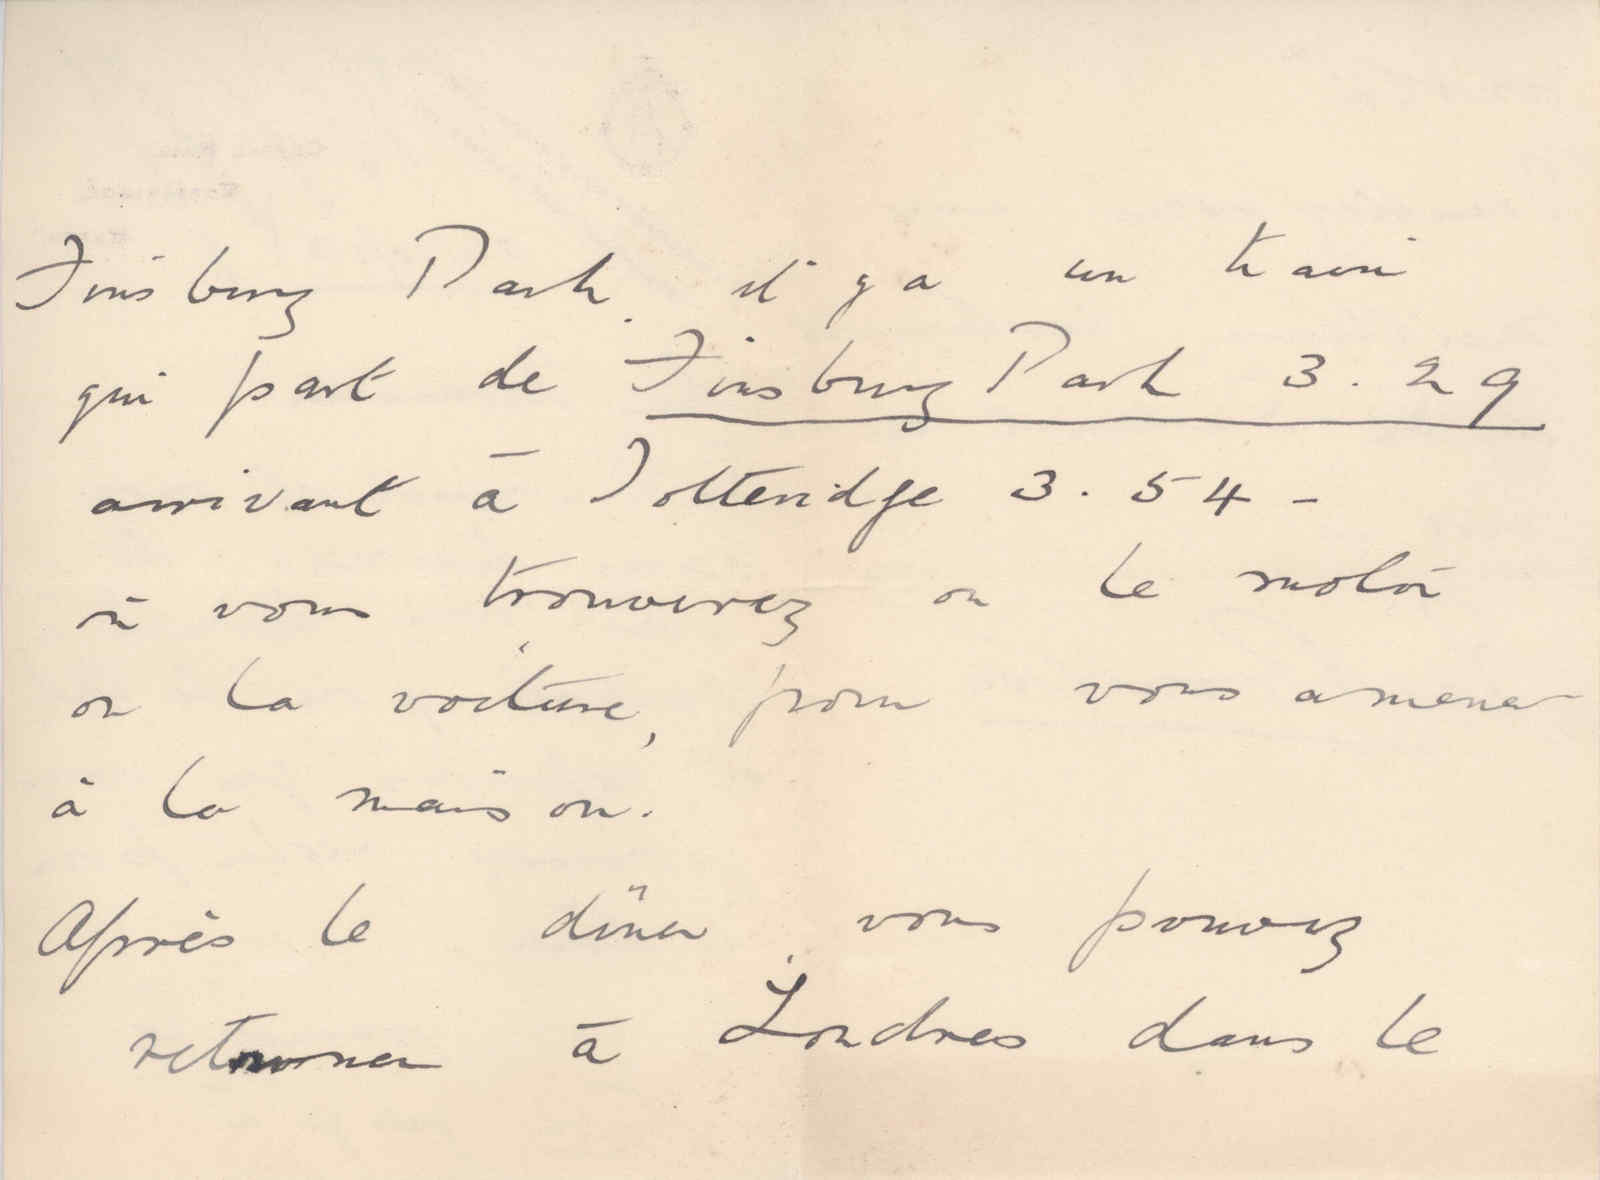 Finsbury Park, il y a un train
qui part de Finsbury Park 3.29
arrivant à Totteridge 3.54 -
où vous trouverez ou le motor
ou la voiture, pour vous amener
à la maison.
Après le dîner vous pouvez
retourner à Londres dans le